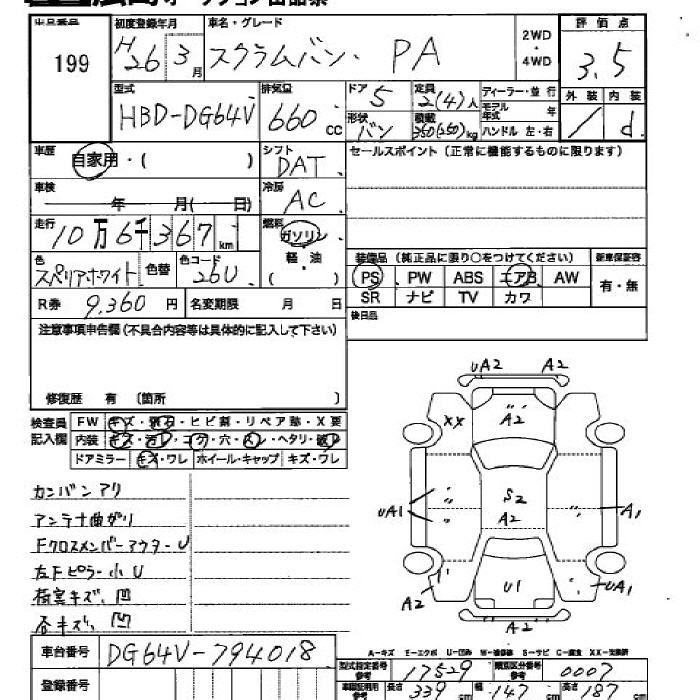 出品番号 初度登録年月 車名・グレード 2WD・4WD 評価点
199 H26 3月 スクラムバン. PA 3.5
型式 排気量 ドア 定員 ディーラー・並行 外装 内装
HBD-DG64V 660cc 5 2(4)人 モデル年式 年 / d
形状 バン 積載 350(250)kg ハンドル 左・右
車歴 自家用・( ) シフト DAT セールスポイント(正常に機能するものに限ります)
車検 年 月( 日) 冷房 AC
走行 10万6千367km 燃料 ガソリン 軽・油 ( )
装備品(純正品に限り○をつけてください) 新車保証書
色 スペリアホワイト 色替 色コード 26U
PS PW ABS エアB AW 有・無
SR ナビ TV カワ
R券 9,360円 名変期限 月 日
後日品
注意事項申告欄(不具合内容等は具体的に記入して下さい)
修復歴 有 〔箇所 〕
検査員記入欄 FW キズ・飛石・ヒビ割・リペア跡・X要
内装 キズ・汚レ・コゲ・穴・スレ・ヘタリ・破レ
ドアミラー キズ・ワレ ホイール・キャップ キズ・ワレ
カンバンアリ
アンテナ曲がり
FクロスメンバーアウターU
左Fピラー小U
荷室キズ、凹
各キズ、凹
UA2 A2
XX A2
S2
A2
UA1 A1
U1
A2 UA1
A2
A-キズ E-エクボ U-凹み W-補修跡 S-サビ C-腐食 XX-交換済
車台番号 DG64V-794018
型式指定番号参考 17529 類別区分番号参考 0007
登録番号
車検証明用参考 長さ 339cm 幅 147cm 高さ 187cm